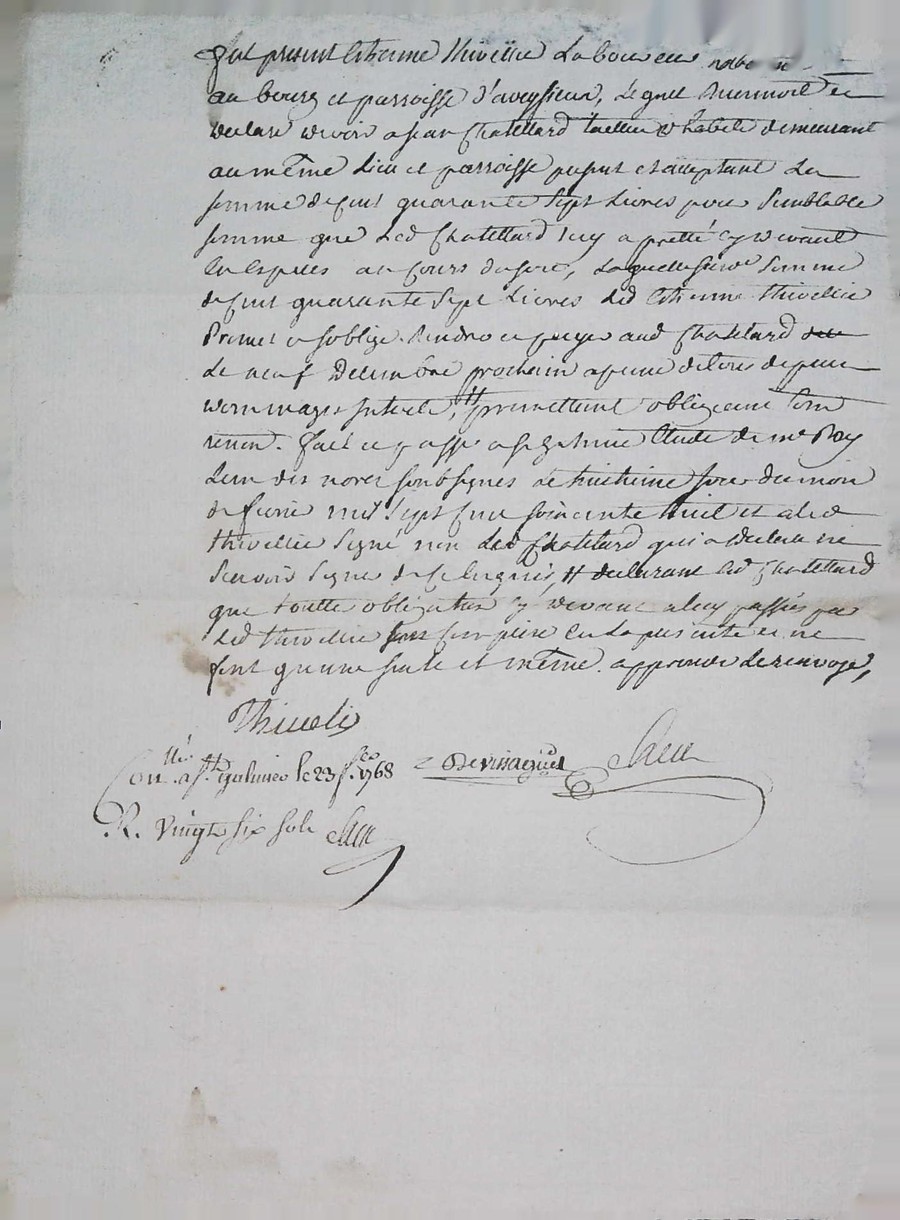 Fut present Etienne Thivellie Laboureur
au bourg et parroisse d'aveysieux, Lequel et
declare devoir a Jean Chatellard tailleur d'habits demeurant
au même Lieu et parroisse present et acceptant La
somme de cent quarante sept Livres pour Semblable
somme que Led Chatellard luy a pretté cy devant
En Especes au Cours Laquelle Somme
de cent quarante sept Livres Led Etienne Thivellie
Promet et soblige Rendre et payer aud Chatellard
Le neuf Decembre prochain a peine de tous depens
dommages Interets, # promettant obligeant
renon. fait et passé a st galmier Etude de me Roy
Lun des nores soubsignés Le huitieme jour du mois
de fevrier mil Sept Cent soixante huit et aled
thivellie Signé non Led Chatellard qui a declaré ne
Scavoir Signer de ce enquis, # declarant led Chatellard
que toutte obligation cy devant a luy passées par
Led thivellie sont comprise En La presente et ne
font qu'une seule et même. approuvé le renvoye,
Thivelie
Con. a st galmier le 23 f. 1768
R. vingt six sols